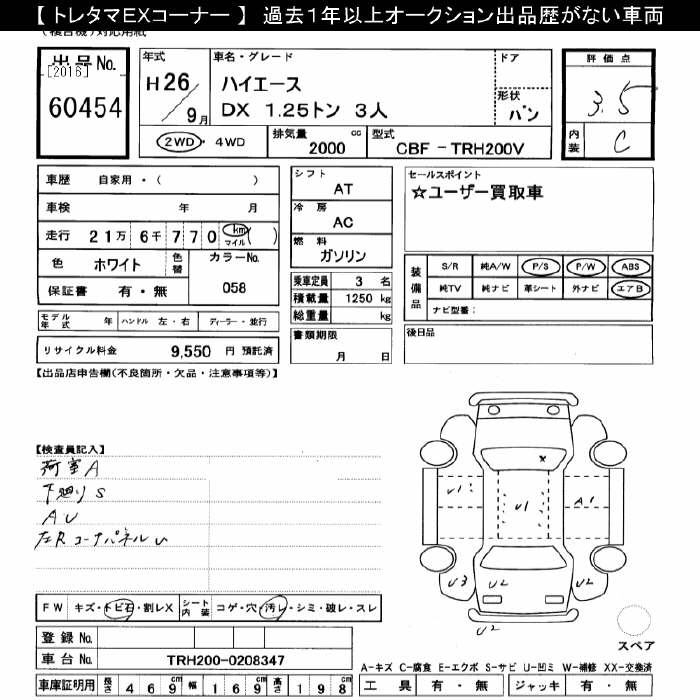 【 トレタマEXコーナー 】 過去1年以上オークション出品歴がない車両
(複合機)対応用紙
出品No.
[2016]
60454
年式
H26
9月
車名・グレード
ハイエース
DX 1.25トン 3人
ドア
形状
バン
評価点
3.5
内装
C
2WD・4WD
排気量 cc
2000
型式
CBF-TRH200V
車歴 自家用・( )
車検 年 月
走行 21万 6千 770 km マイル ( )
色 ホワイト 色替 カラーNo.
058
保証書 有・無
シフト
AT
冷房
AC
燃料
ガソリン
乗車定員 3 名
積載量 1250 kg
総重量 kg
セールスポイント
☆ユーザー買取車
装備品
S/R 純A/W P/S P/W ABS
純TV 純ナビ 革シート 外ナビ エアB
ナビ型番:
モデル年式 年 ハンドル 左・右 ディーラー・並行
リサイクル料金 9,550 円 預託済
書類期限
月 日
後日品
【出品店申告欄(不良箇所・欠品・注意事項等)】
【検査員記入】
荷室A
下廻りS
AU
左Rコーナパネルu
x
U1
U1
A1
U3
U2
U2
U2
FW キズ・トビ石・割レX シート内装 コゲ・穴・汚レ・シミ・破レ・スレ
登録No.
車台No. TRH200-0208347
スペア
A-キズ C-腐食 E-エクボ S-サビ U-凹ミ W-補修 XX-交換済
車庫証明用 長さ 469cm 幅 169cm 高さ 198cm
工具 有・無 ジャッキ 有・無